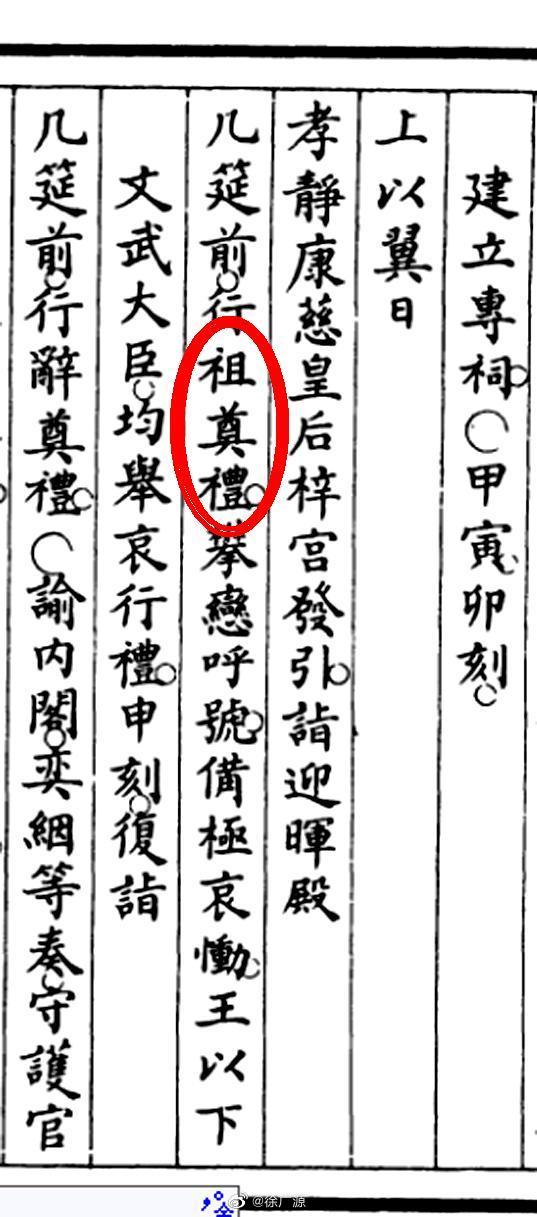 建立專祠○甲寅卯刻
上以翼日
孝靜康慈皇后梓宮發引詣迎暉殿
几筵前行祖奠禮攀戀呼號備極哀慟王以下
文武大臣均舉哀行禮申刻復詣
几筵前行辭奠禮○諭內閣奕絪等奏守護官
@徐广源